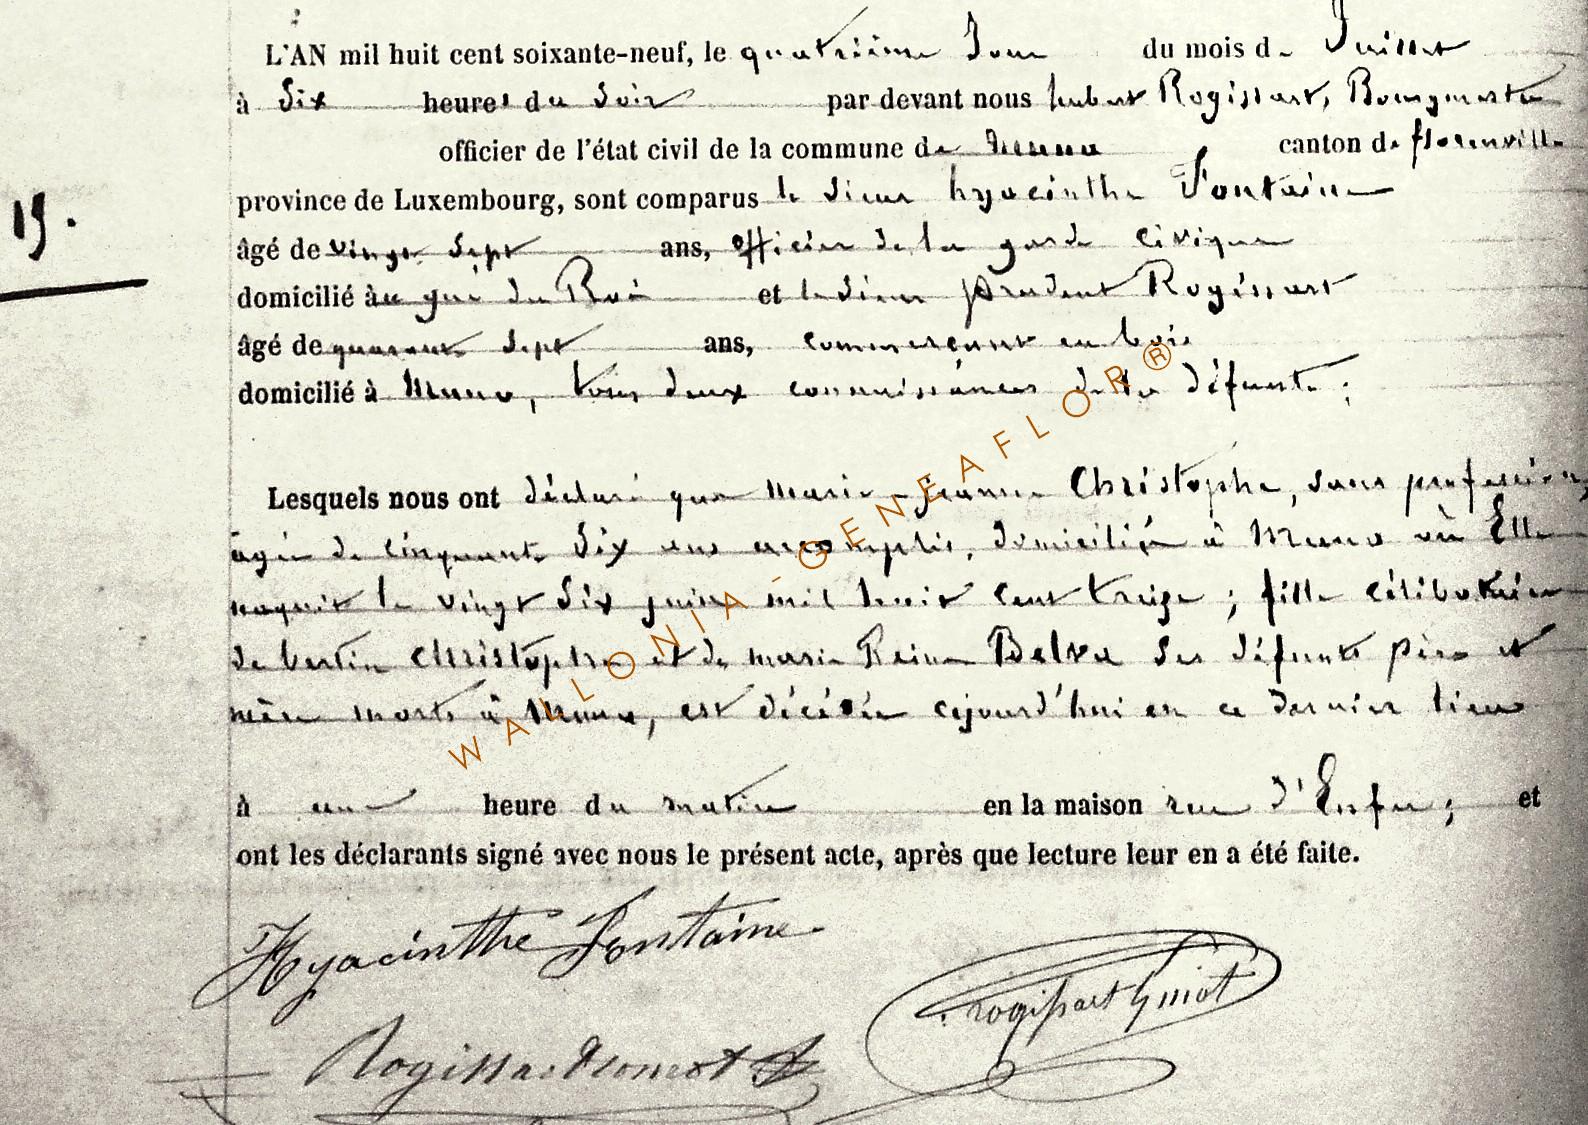 L'AN mil huit cent soixante-neuf, le quatrième Jour du mois de Juillet
à Six heures du Soir par devant nous hubert Rogissart, Bourgmestre
officier de l'état civil de la commune de Muno canton de florenville
province de Luxembourg, sont comparus le Sieur hyacinthe Fontaine
19.
âgé de vingt Sept ans, officier de la garde civique
domicilié àu gué du Roi et le Sieur prudent Rogissart
âgé de quarante Sept ans, commerçant en bois
domicilié à Muno, tous deux connaissances de la défunte ;
Lesquels nous ont déclaré que Marie-jeanne Christophe, sans profession,
âgée de cinquante Six ans accomplis, domiciliée à Muno où Elle
naquit le vingt Six juin mil huit Cent treize ; fille célibataire
de Christophe et de marie Reine Delva Ses défunts père et
mère morts à Muno, est décédée cejourd'hui en ce dernier lieu
à une heure du matin en la maison rue d'Enfer ; et
ont les déclarants signé avec nous le présent acte, après que lecture leur en a été faite.
Hyacinthe Fontaine
Rogissart Guiot
Rogissart
WALLONIA - GENEAFLOR ®